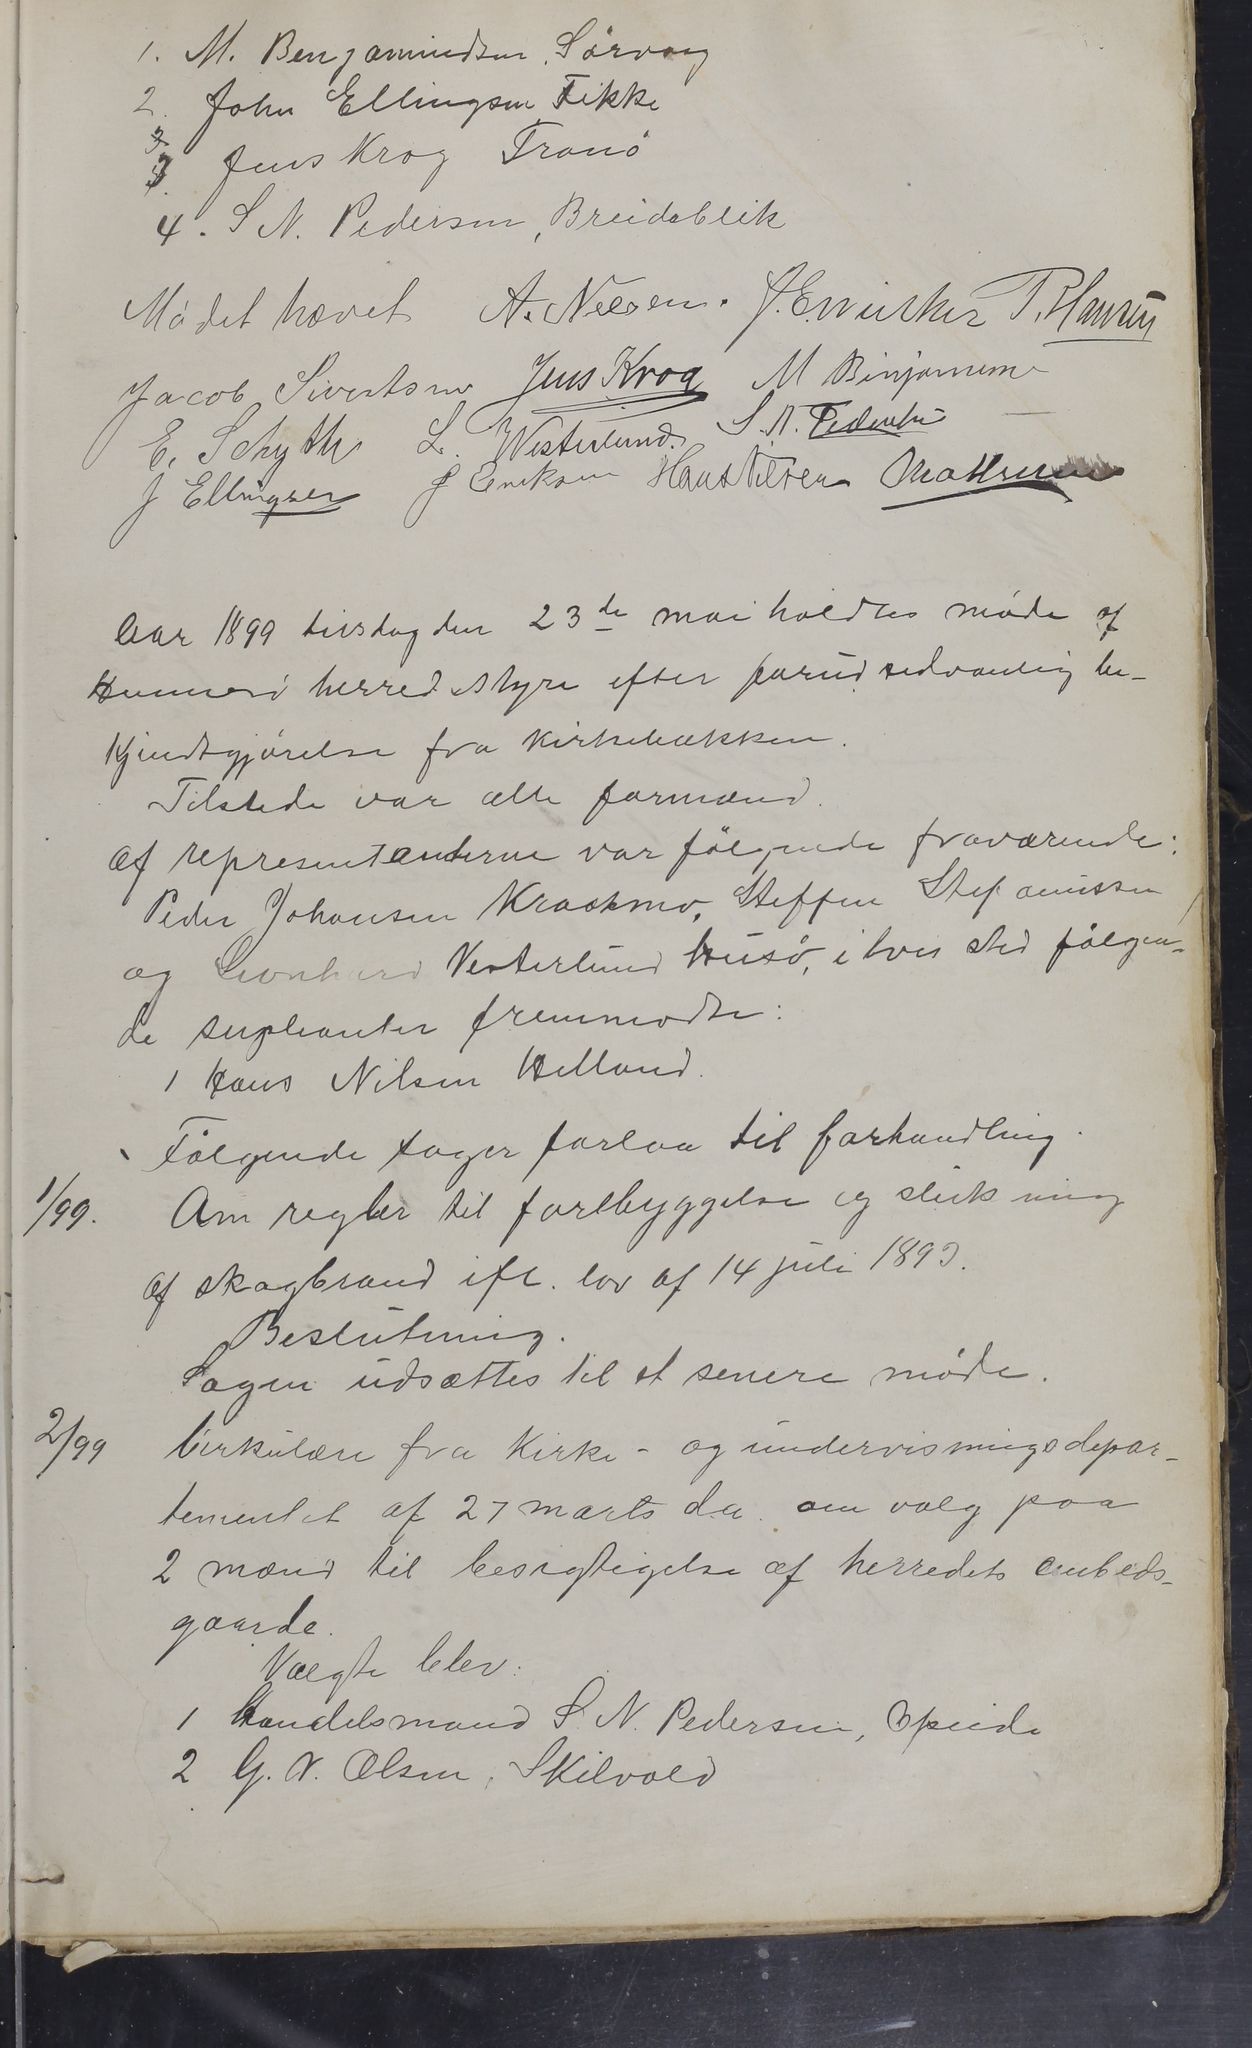 1. M. Benjamindsen, Sörvaag
2. John Ellingsen, Fikke
3 Jens Krog Tranö
4. S N. Pedersen, Breidablik
Mödet hævet A. Nilsen. T. Hansen
Jacob Sivertsen Jens Krog M Binjamin
E. Schyth L. Westerlund. S. N. Pedersen
J Ellingsen J Eriksen Hans Nilsen
Aar 1899 tirsdag den 23de mai holdtes möde af
Hammerö herredstyre efter forud sedvanlig be-
kjendtgjörelse fra kirkebakken.
Tilstede var alle formænd.
af representanterne var fölgende fraværende:
Peder Johansen Kraakmo, Steffen Stefanussen
og Leonhard Vesterlund Husö, i hvis sted fölgen-
de supleanter fremmødte:
1 Hans Nilsen Helland.
Fölgende sager forlaa til forhandling.
1/99. Om regler til forebyggelse og slukning
af skogbrand ifl. lov af 14 juli 1893.
Beslutning.
Sagen udsættes til et senere möde.
2/99 Cirkulære fra Kirke- og undervisningsdepar-
tementet af 27 marts d.a. om valg paa
2 mænd til besigtigelse af herredets embeds-
gaarde.
Valgte blev:
1 Handelsmand S. N. Pedersen, Opeide
2 G. N. Olsen, Skilvold